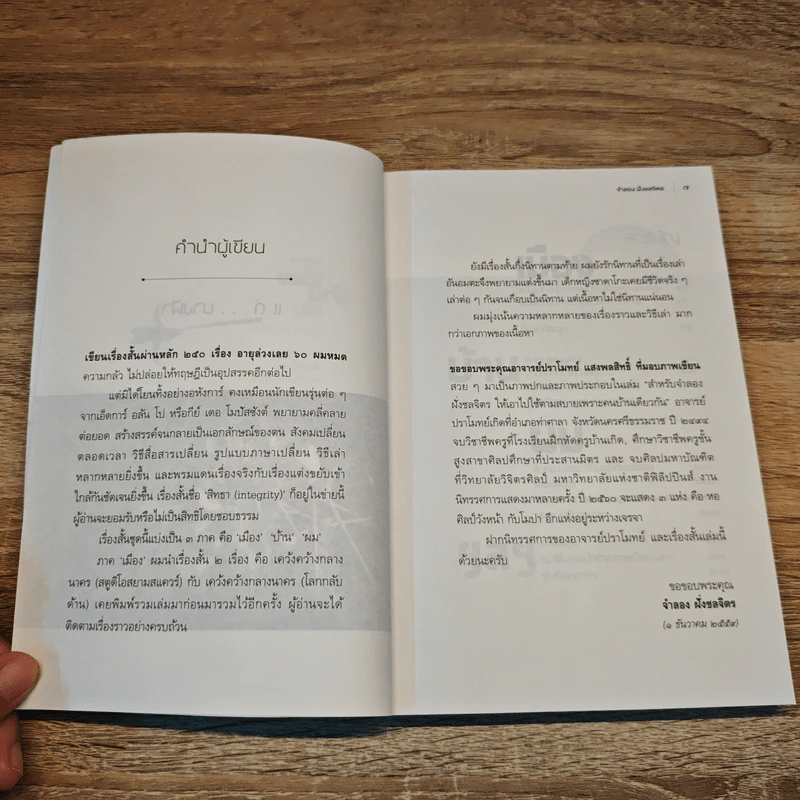 คำนำผู้เขียน
เขียนเรื่องสั้นผ่านหลัก ๒๕๐ เรื่อง อายุล่วงเลย ๖๐ ผมหมด
ความกลัว ไม่ปล่อยให้ทฤษฎีเป็นอุปสรรคอีกต่อไป
แต่มิได้โยนทิ้งอย่างอหังการ์ คงเหมือนนักเขียนรุ่นต่อ ๆ
จากเอ็ดการ์ อลัน โป หรือกีย์ เดอ โมปัสซังต์ พยายามคลี่คลาย
ต่อยอด สร้างสรรค์จนกลายเป็นเอกลักษณ์ของตน สังคมเปลี่ยน
ตลอดเวลา วิธีสื่อสารเปลี่ยน รูปแบบภาษาเปลี่ยน วิธีเล่า
หลากหลายยิ่งขึ้น และพรมแดนเรื่องจริงกับเรื่องแต่งขยับเข้า
ใกล้กันชัดเจนยิ่งขึ้น เรื่องสั้นชื่อ 'สิทธา (integrity)' ก็อยู่ในข่ายนี้
ผู้อ่านจะยอมรับหรือไม่เป็นสิทธิโดยชอบธรรม
เรื่องสั้นชุดนี้แบ่งเป็น ๓ ภาค คือ 'เมือง' 'บ้าน' 'ผม'
ภาค 'เมือง' ผมนำเรื่องสั้น ๒ เรื่อง คือ เคว้งคว้างกลาง
นาคร (สตูดิโอสยามสแควร์) กับ เคว้งคว้างกลางนาคร (โลกกลับ
ด้าน) เคยพิมพ์รวมเล่มมาก่อนมารวมไว้อีกครั้ง ผู้อ่านจะได้
ติดตามเรื่องราวอย่างครบถ้วน
จำลอง ฝั่งชลจิตร | ๗
ยังมีเรื่องสั้นกึ่งนิทานตามท้าย ผมยังรักนิทานที่เป็นเรื่องเล่า
อันอมตะจึงพยายามแต่งขึ้นมา เด็กหญิงซาดาโกะเคยมีชีวิตจริง ๆ
เล่าต่อ ๆ กันจนเกือบเป็นนิทาน แต่เนื้อหาไม่ใช่นิทานแน่นอน
ผมมุ่งเน้นความหลากหลายของเรื่องราวและวิธีเล่า มาก
กว่าเอกภาพของเนื้อหา
ขอขอบพระคุณอาจารย์ปราโมทย์ แสงพลสิทธิ์ ที่มอบภาพเขียน
สวย ๆ มาเป็นภาพปกและภาพประกอบในเล่ม "สำหรับจำลอง
ฝั่งชลจิตร ให้เอาไปใช้ตามสบายเพราะคนบ้านเดียวกัน" อาจารย์
ปราโมทย์เกิดที่อำเภอท่าศาลา จังหวัดนครศรีธรรมราช ปี ๒๔๙๔
จบวิชาชีพครูที่โรงเรียนฝึกหัดครูบ้านเกิด, ศึกษาวิชาชีพครูชั้น
สูงสาขาศิลปศึกษาที่ประสานมิตร และ จบศิลปมหาบัณฑิต
ที่วิทยาลัยวิจิตรศิลป์ มหาวิทยาลัยแห่งชาติฟิลิปปินส์ งาน
นิทรรศการแสดงมาหลายครั้ง ปี ๒๕๖๐ จะแสดง ๓ แห่ง คือ หอ
ศิลป์วังหน้า กับโมปา อีกแห่งอยู่ระหว่างเจรจา
ฝากนิทรรศการของอาจารย์ปราโมทย์ และเรื่องสั้นเล่มนี้
ด้วยนะครับ
ขอขอบพระคุณ
จำลอง ฝั่งชลจิตร
(๑ ธันวาคม ๒๕๕๙)